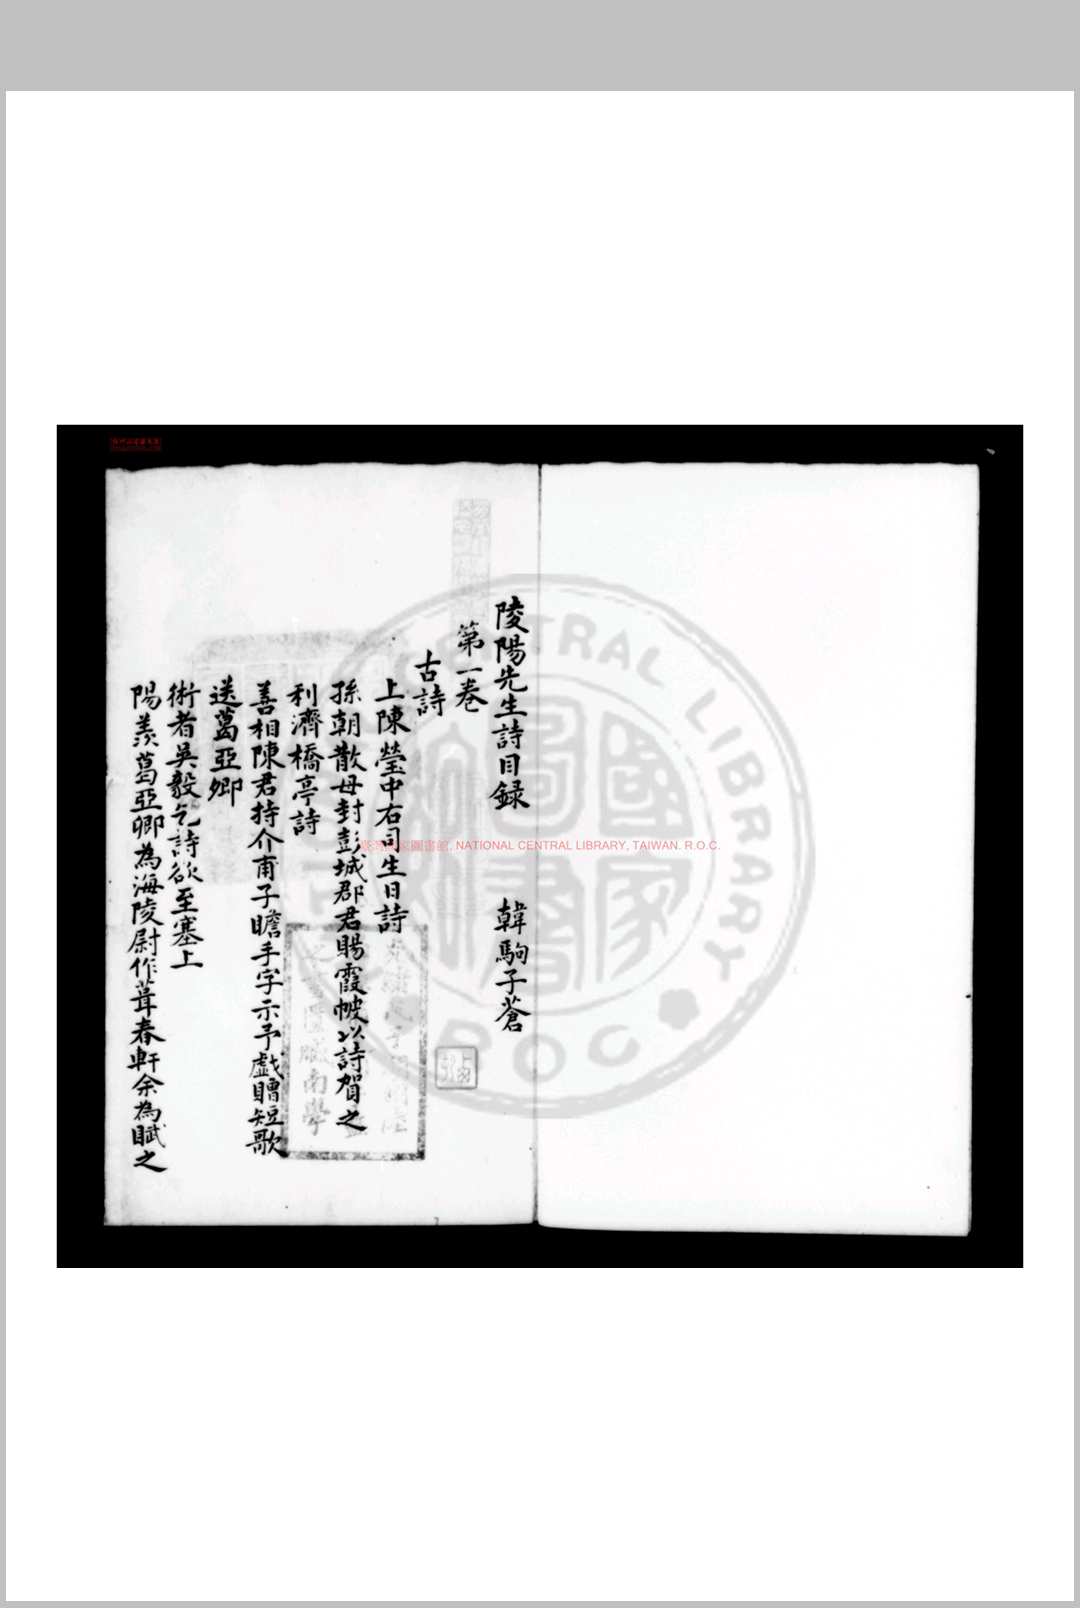 陵陽先生詩目録 韓駒子蒼
第一卷
古詩
上陳瑩中右司生日詩
孫朝散母封彭城郡君賜霞帔以詩賀之
利濟橋亭詩
善相陳君持介甫子瞻手字示予戲贈短歌
送葛亞卿
術者吳毅乞詩欲至塞上
陽羡葛亞卿為海陵尉作葺春軒余為賦之
圖書館, NATIONAL CENTRAL LIBRARY, TAIWAN. R.O.C.
CENTRAL LIBRARY
ROC
國家圖書